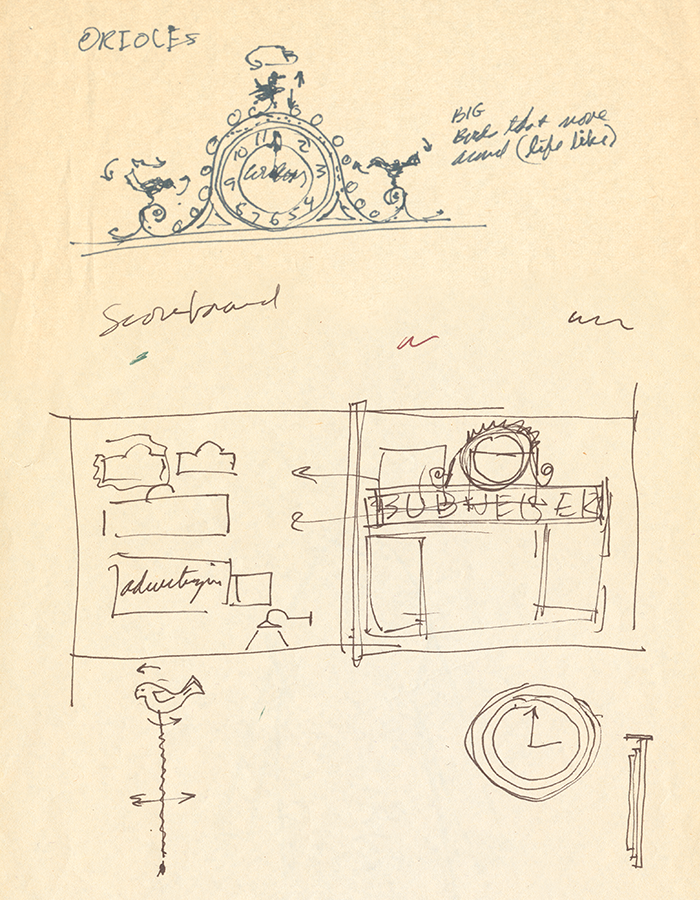 ORIOLES
BIG
Birds that move
around (life like)
10 11 2
9 3
8 7 6 5 4
Scoreboard
BUDWEISER
advertising